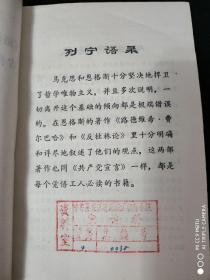 列宁语录
马克思和恩格斯十分坚决地捍卫
了哲学唯物主义，并且多次说明，一
切离开这个基础的倾向都是极端错误
的。在恩格斯的著作《路德维希·费
尔巴哈》和《反杜林论》里十分明确
和详尽地叙述了他们的观点，这两部
著作也同《共产党宣言》一样，都是
每个觉悟工人必读的书籍。